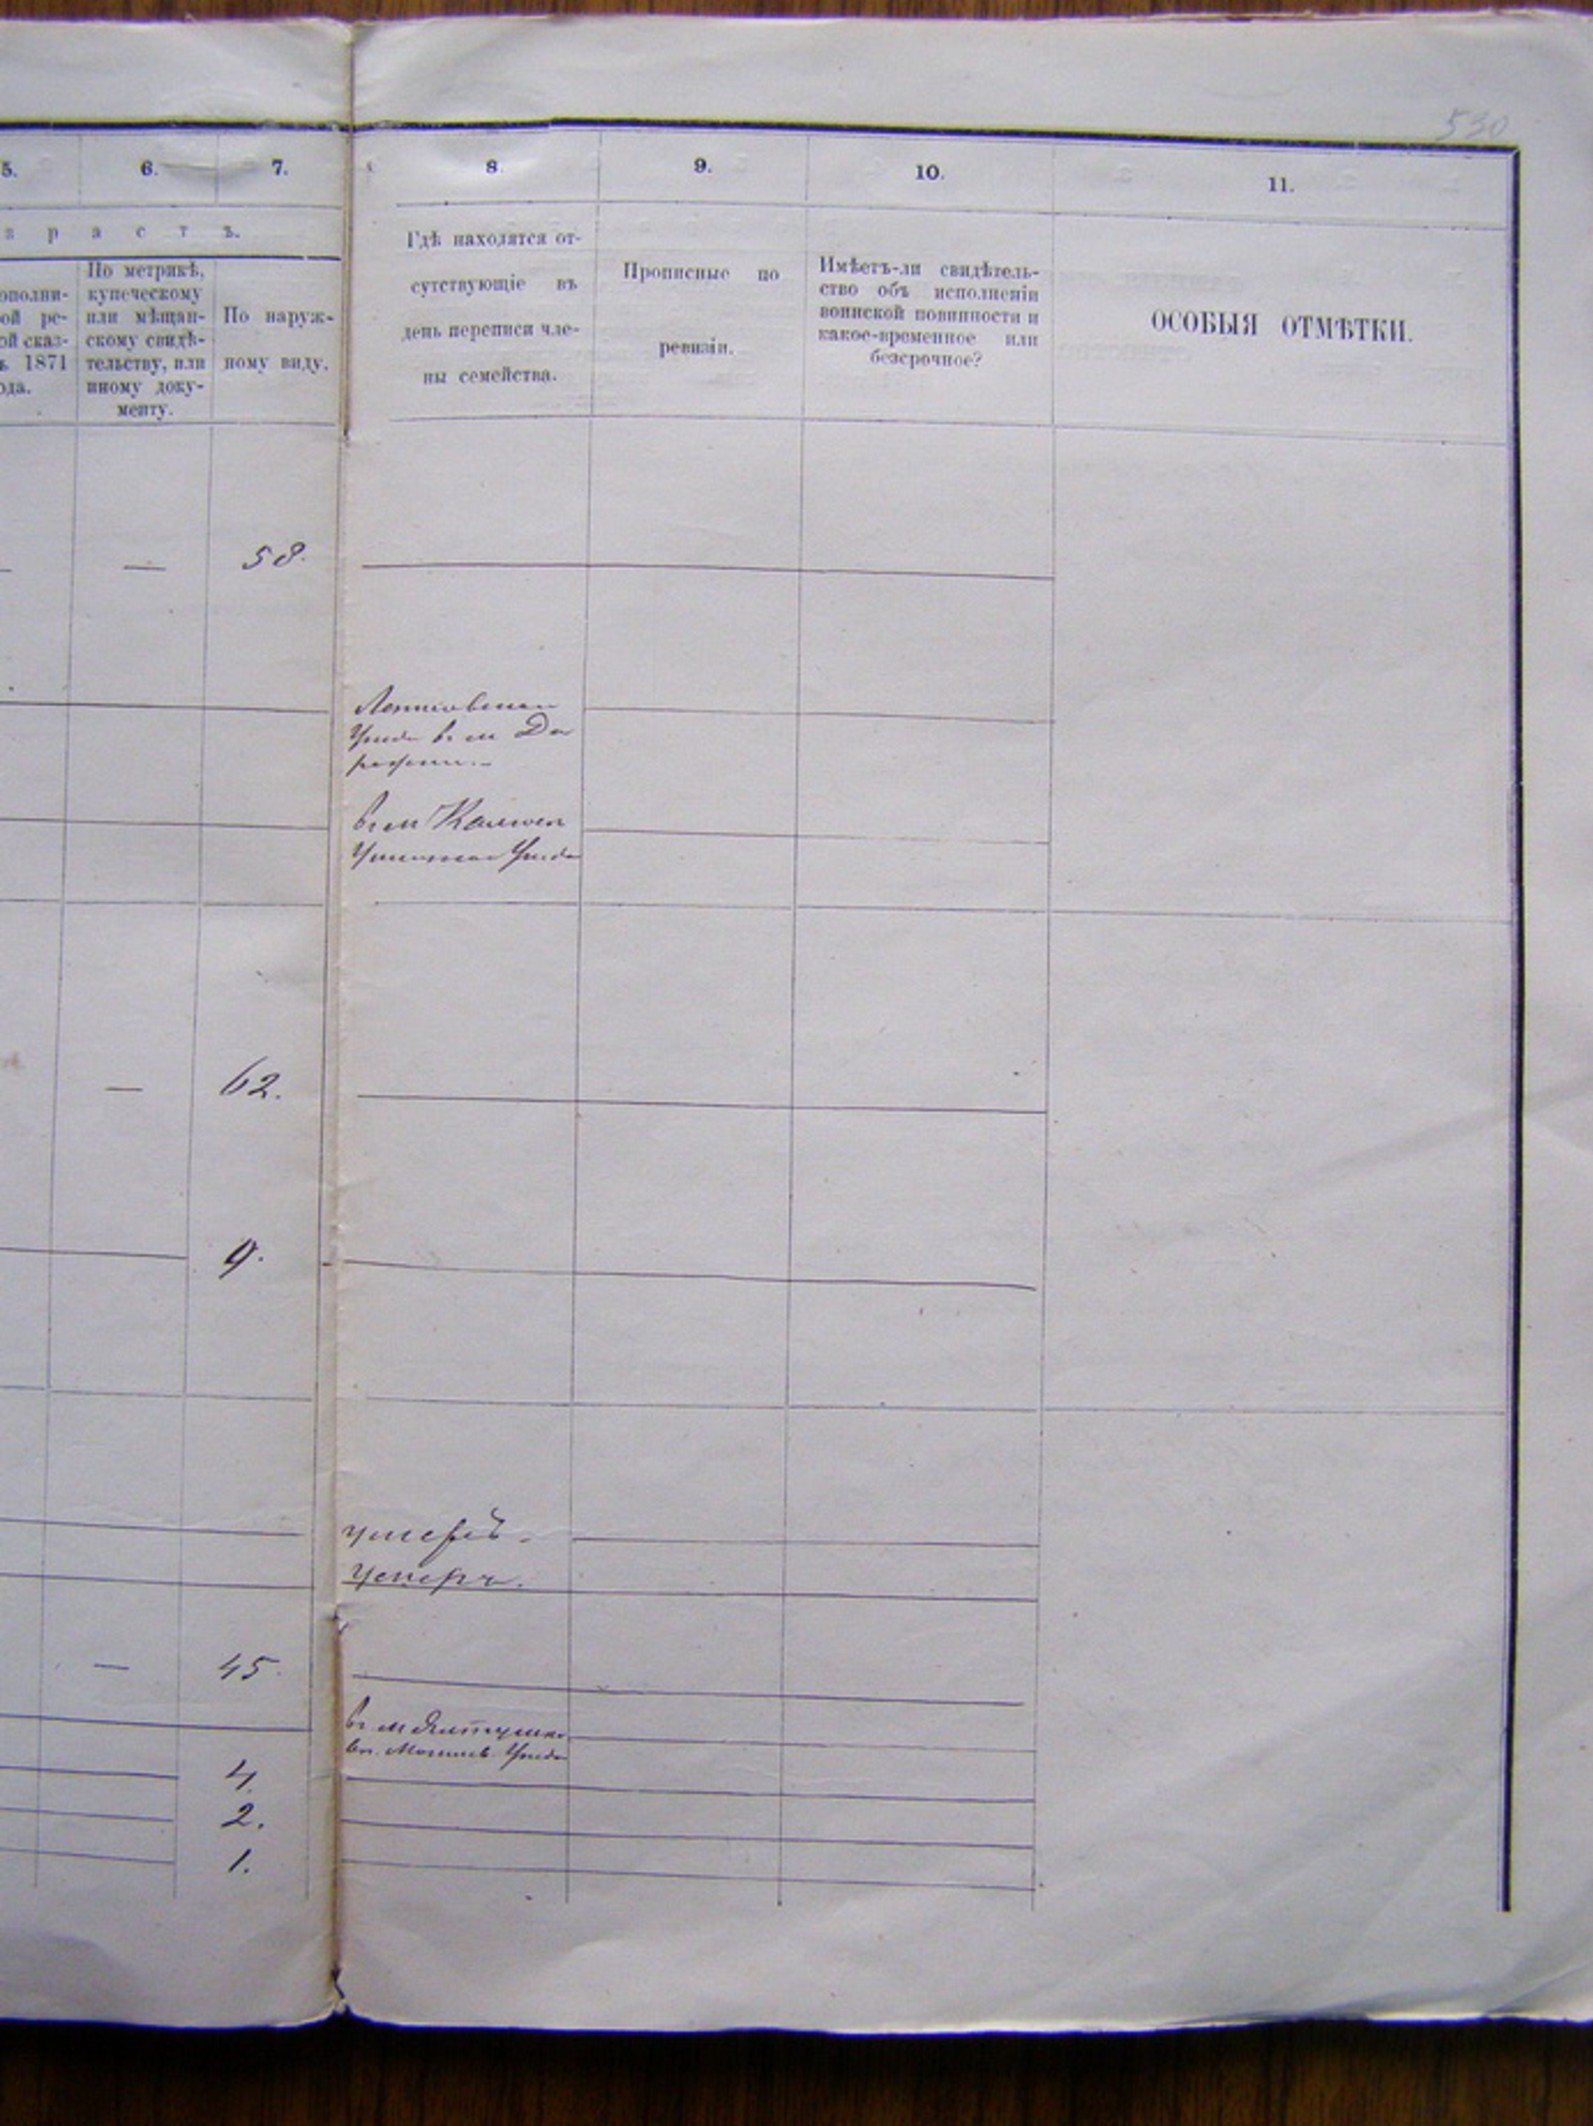 530
5. 6. 7. 8 9. 10. 11.
з р а с т ъ.
ополни-
ой ре-
ой сказ-
ъ 1871
ода.
По метрикѣ,
купеческому
или мѣщан-
скому свидѣ-
тельству, или
иному доку-
менту.
По наруж-
ному виду.
Гдѣ находятся от-
сутствующіе въ
день переписи чле-
ны семейства.
Прописные по
ревизіи.
Имѣетъ-ли свидѣтель-
ство объ исполненіи
воинской повинности и
какое-временное или
безсрочное?
ОСОБЫЯ ОТМѢТКИ.
— 58.
Уѣзда въ м
въ м
Уѣзда
— 62.
9.
умеръ.
умеръ.
— 45.
въ м Ялтушко
въ. Могилев. Уѣзда
4.
2.
1.